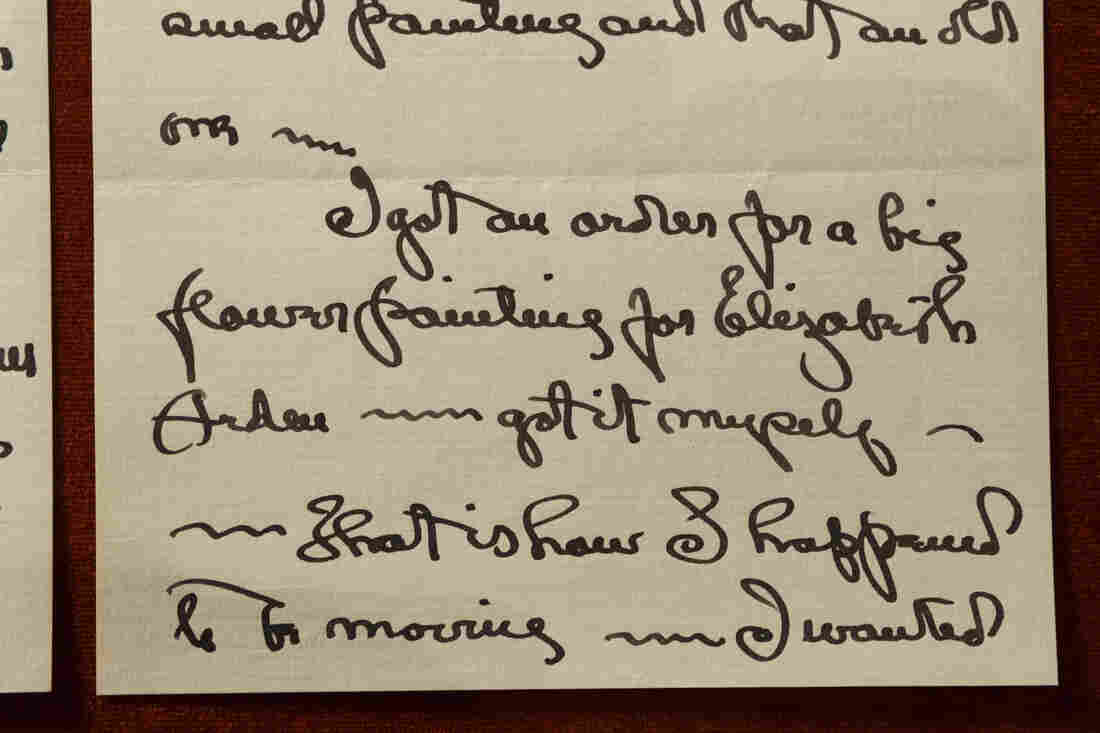 small painting and that an old
one ~~
I got an order for a big
flower painting for Elizabeth
Arden ~~ got it myself ~
~~ That is how I happened
to be moving ~~ I wanted